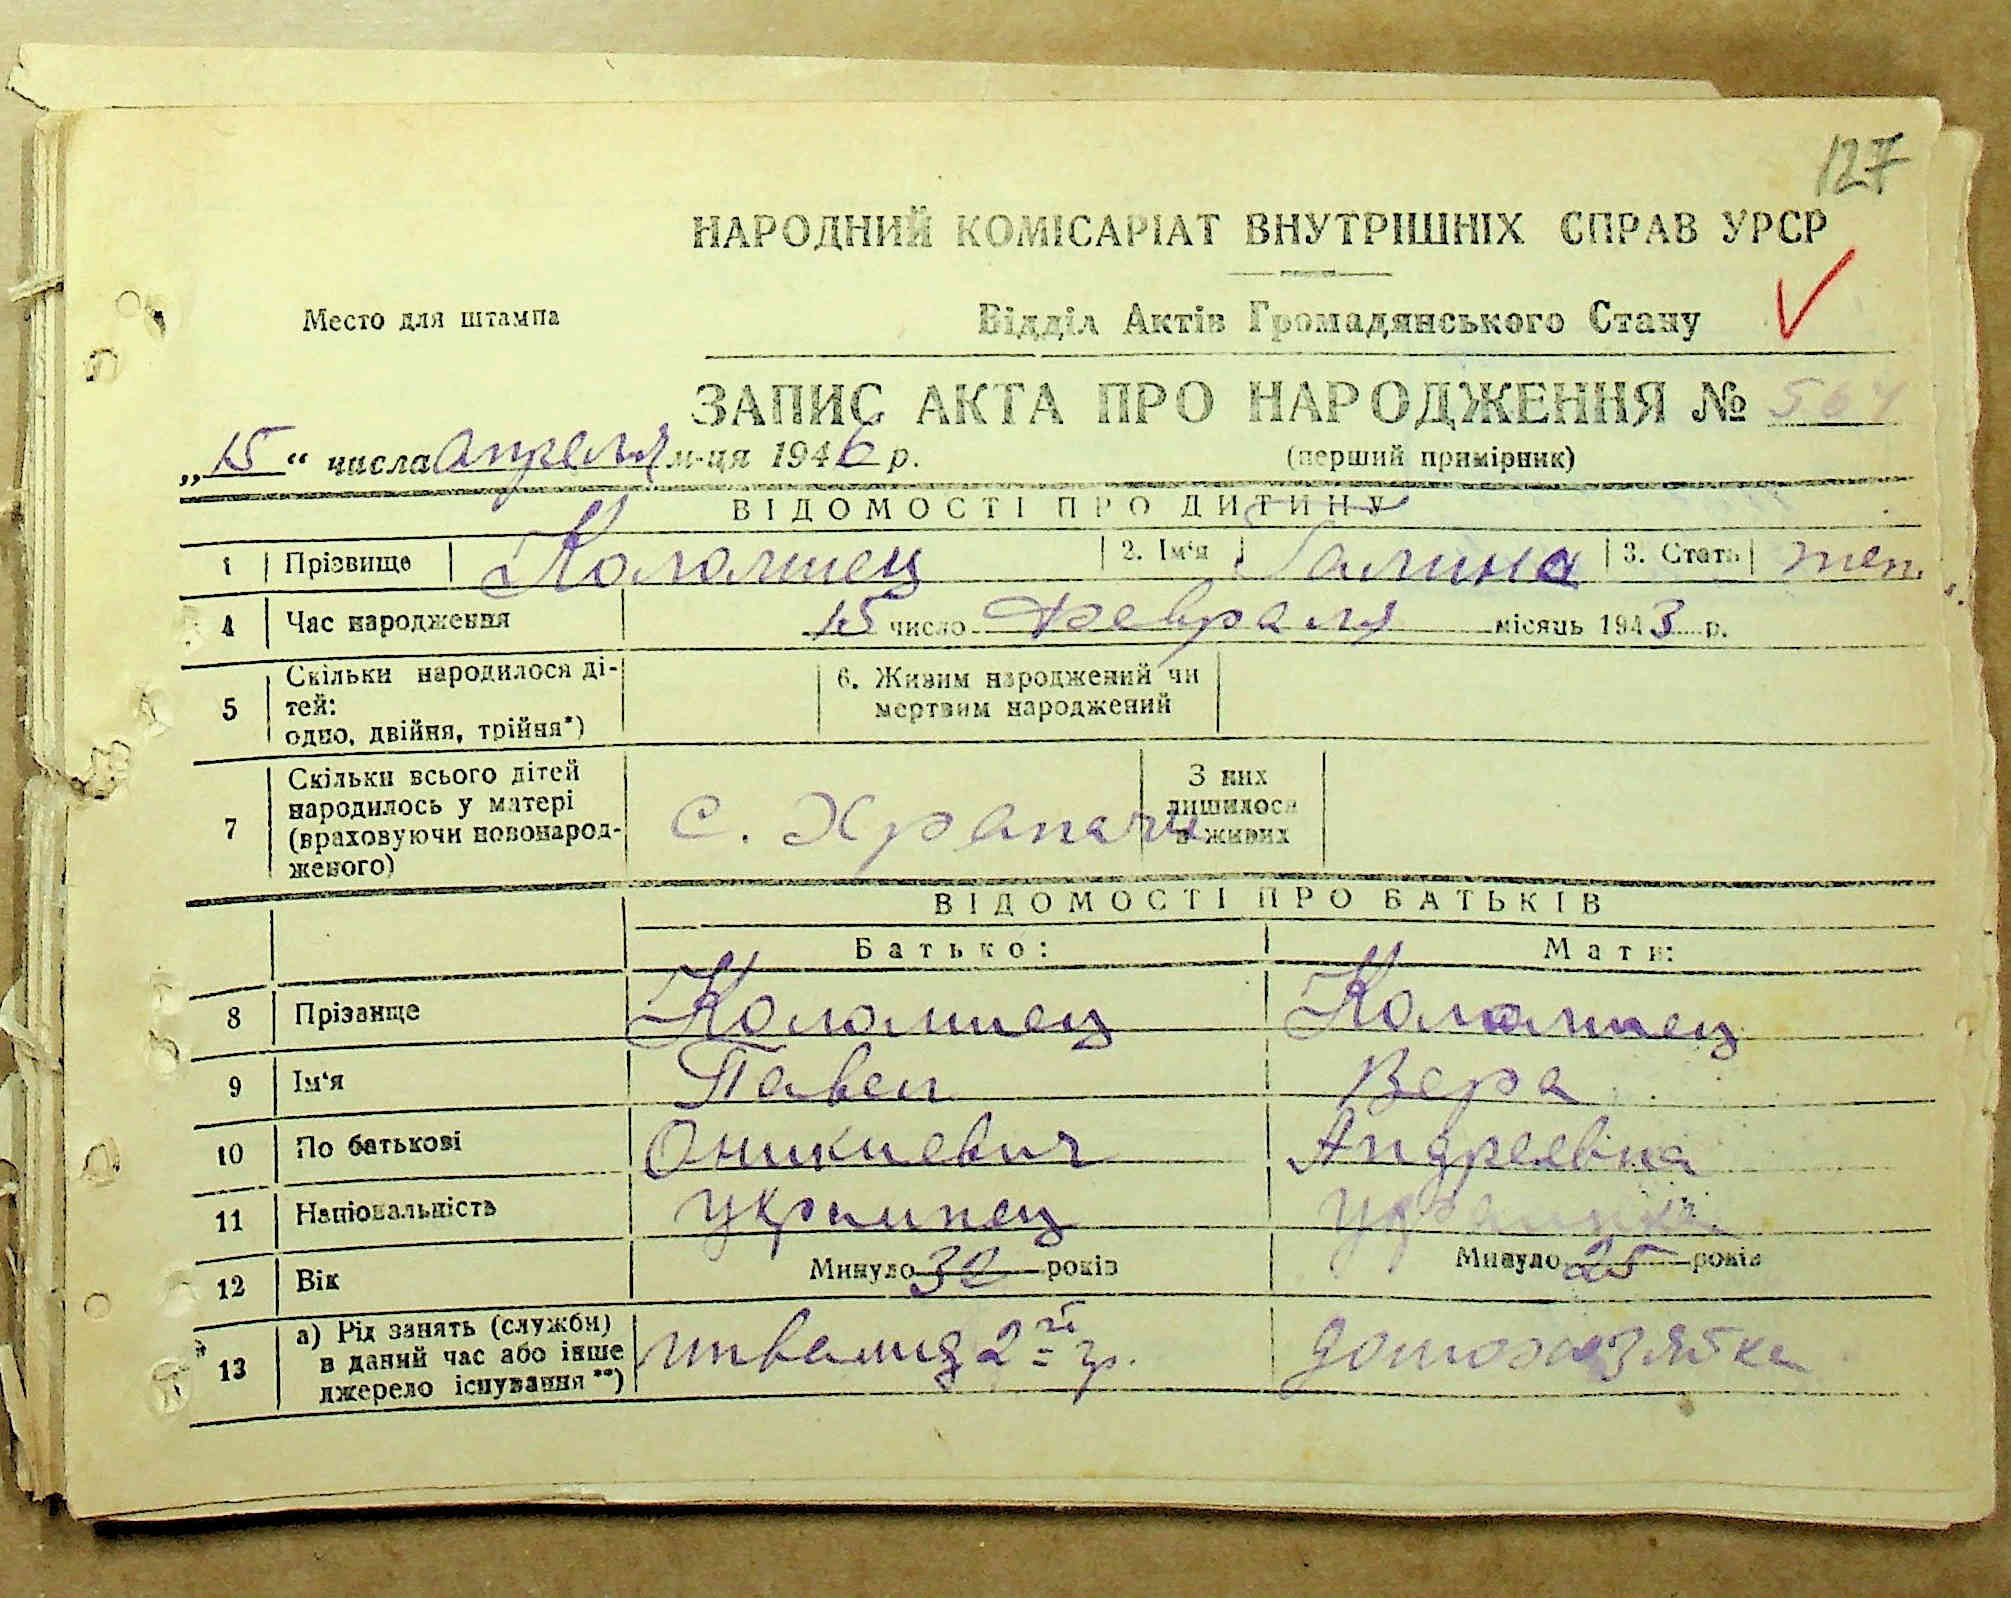 127
НАРОДНИЙ КОМІСАРІАТ ВНУТРІШНІХ СПРАВ УРСР
Место для штампа
Відділ Актів Громадянського Стану
ЗАПИС АКТА ПРО НАРОДЖЕННЯ № 564
„15“ числа апреля м-ця 1946 р.
(перший примірник)
ВІДОМОСТІ ПРО ДИТИНУ
1 Прізвище Коломиец 2. Ім‘я Галина 3. Стать жен.
4 Час народження 15 число февраля місяць 1943 р.
5 Скільки народилося ді-
тей:
одно, двійня, трійня*)
6. Живим народжений чи
мертвим народжений
7 Скільки всього дітей
народилось у матері
(враховуючи новонарод-
женого)
с. Храпачи
З них
лишилося
в живих
ВІДОМОСТІ ПРО БАТЬКІВ
Батько: Мати:
8 Прізвище Коломиец Коломиец
9 Ім‘я Павел Вера
10 По батькові Оникиевич Андреевна
11 Національність Украинец Украинка
12 Вік Минуло 32 років Минуло 25 років
13 а) Рід занять (служби)
в даний час або інше
джерело існування**)
инвалид 2й гр. домохозяйка